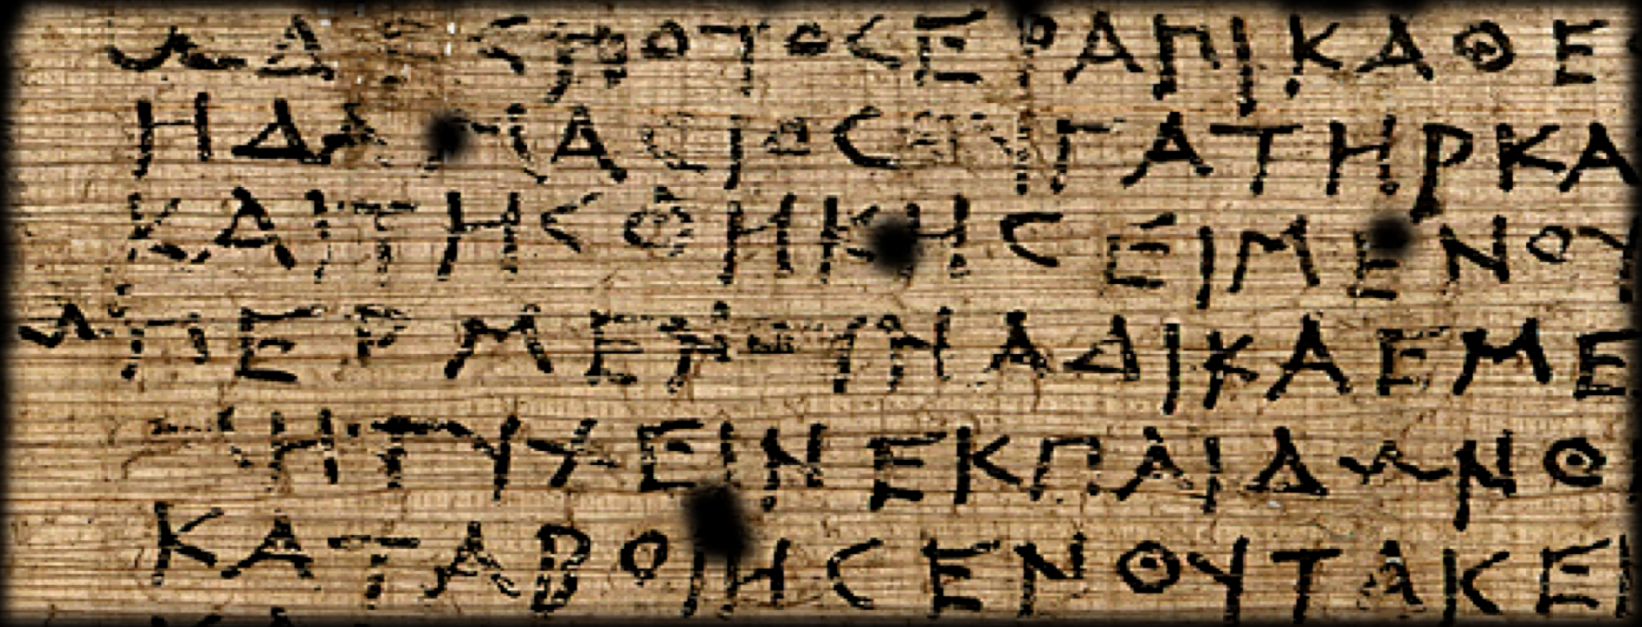 ΩΔΕCΠΟΤΟCΕΡΑΠΙΚΑΘΕ
ΗΔΑΜΑCΙΟCΘΥΓΑΤΗΡΚΑ
ΚΑΙΤΗCΘΗΚΗCΕΙΜΕΝΟΥ
ΩΠΕΡΜΕΝΟΥΝΑΔΙΚΑΕΜΕ
ΜΗΤΥΧΕΙΝΕΚΠΑΙΔΩΝΘ
ΚΑΤΑΒΟΙΗCΕΝΘΥΤΑΚΕΙ